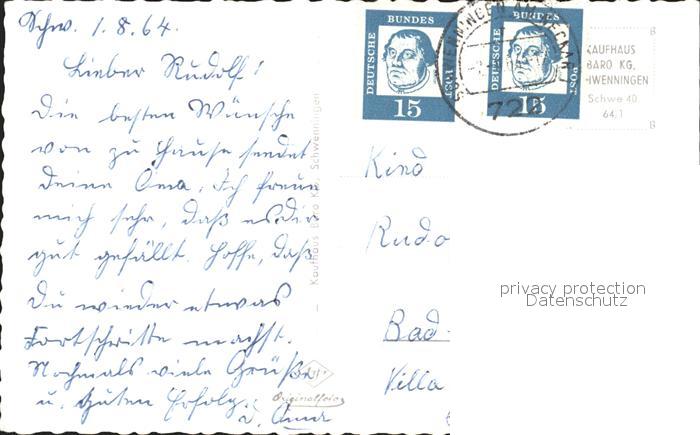 Schw. 1.8.64.
Lieber Rudolf!
Die besten Wünsche
von zu Hause sendet
Deine Oma. Ich freue
mich sehr, daß es dir
gut gefällt. Hoffe, daß
Du wieder etwas
Fortschritte machst.
Nochmals viele Grüße
u. guten Erfolg.
d. Oma
Kaufhaus Baro KG., Schwenningen
Originalfoto
DEUTSCHE BUNDESPOST
15
DEUTSCHE BUNDESPOST
15
SCHWENNINGEN AM NECKAR
722
KAUFHAUS
BARO KG.
SCHWENNINGEN
Schwe 40
64/1
Kind
Rudo
Bad
Villa
privacy protection
Datenschutz